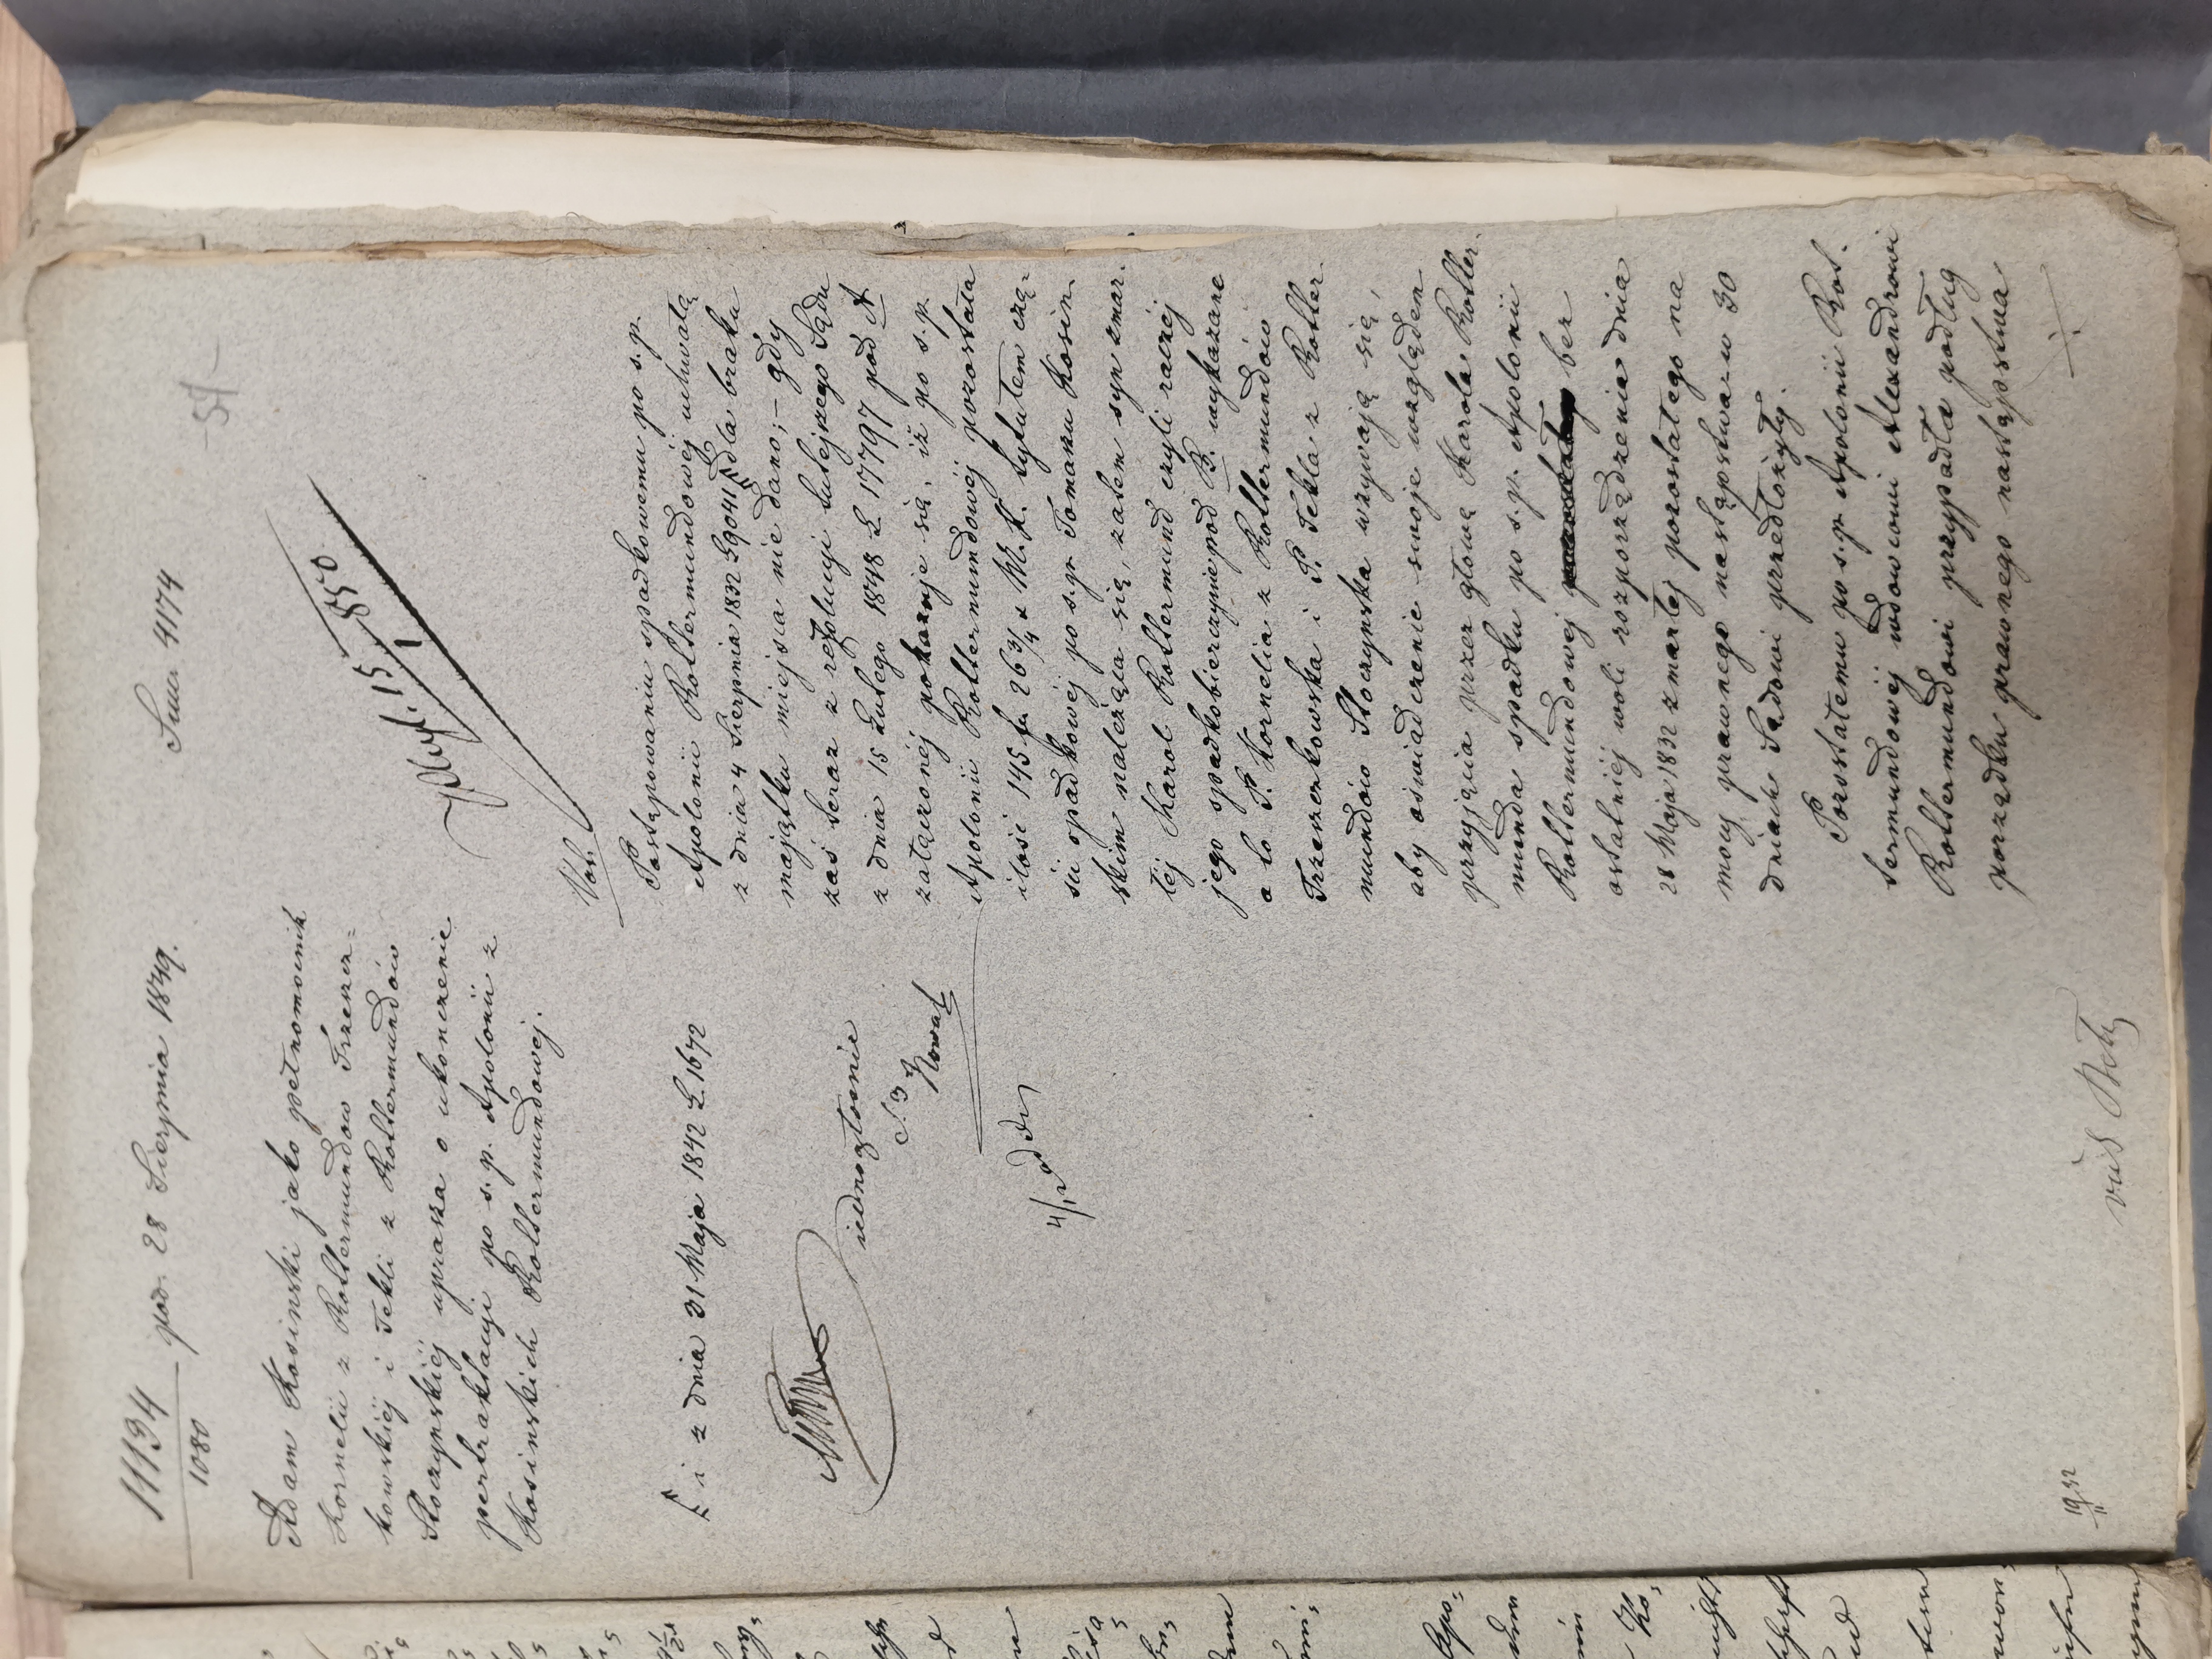 11134 pod. 28 Sierpnia 1849. Suma 4174
1080
- 54 -
Adam Kosinski jako pełnomocnik
Kornelii z Rottermundow Trzeszcz=
kowskiéj i Tekli z Rottermundów
Stoczynskiéj uprasza o ukonczenie
pertraktacyi po s.p. Apolonii z
Kosinskich Rottermundowej.
i z dnia 31 Maja 1842 L. 1672
iednogłosnie
Nowak
4/12
vid
19/11 52
15 850
1
Postępowaniu spadkowemu po s.p.
Apolonii Rottermundowéj uchwałą
z dnia 4 Sierpnia 1832 L 9041 dla braku
majątku miejsca nie dano; – gdy
zaś teraz z rezolucyi tutejszego Sądu
z dnia 15 Lutego 1848 L 17797 pod A
załączonéj pokazuje się, iż po s.p.
Apolonii Rottermundowéj pozostała
ilosć 145 fr 26 3/4 x M.K. tytułem czę-
sci spadkowéj po s.p. Tomaszu Kosin
skim należąca się, zatem syn zmar.
łéj Karol Rottermund czyli raczéj
jego spadkobierczynie pod B. wykazane
a to P. Kornelia z Rottermundów
Trzeszczkowska i P. Tekla z Rotter.
mundów Stoczynska wzywają się,
aby oswiadczenie swoje względem
przyjęcia przez głowę Karola Rotter
munda spadku po s.p. Apolonii
Rottermundowej bez
ostatniéj woli rozporządzenia dnia
28 Maja 1832 zmarłéj pozostałego na
mocy prawnego następstwa w 30
dniach Sądowi przedłożyły.
Pozostałemu po s.p. Apolonii Rot.
termundowéj wdowcowi Alexandrowi
Rottermundowi przypadła podług
porządku prawnego następstwa